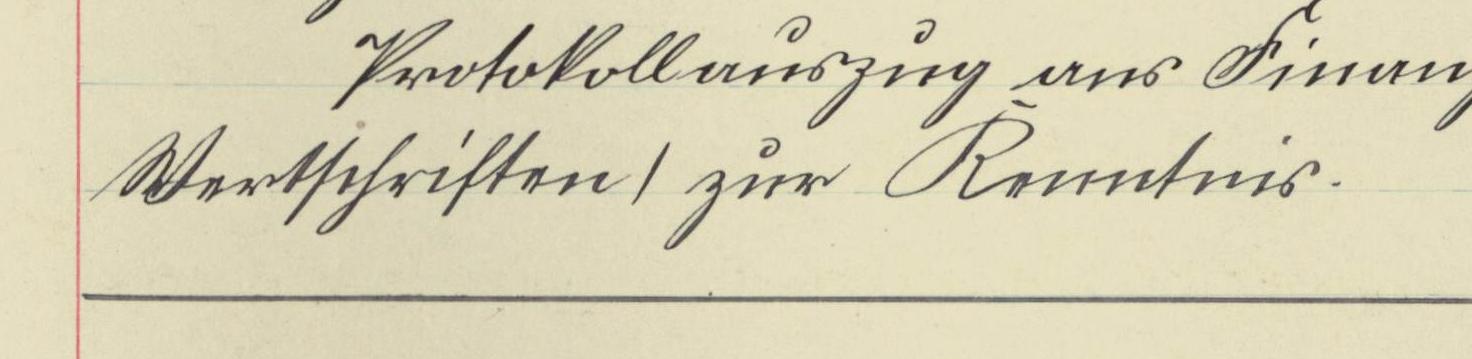 Protokollauszug ans Finanz
Wertschriften/ zur Kenntnis.